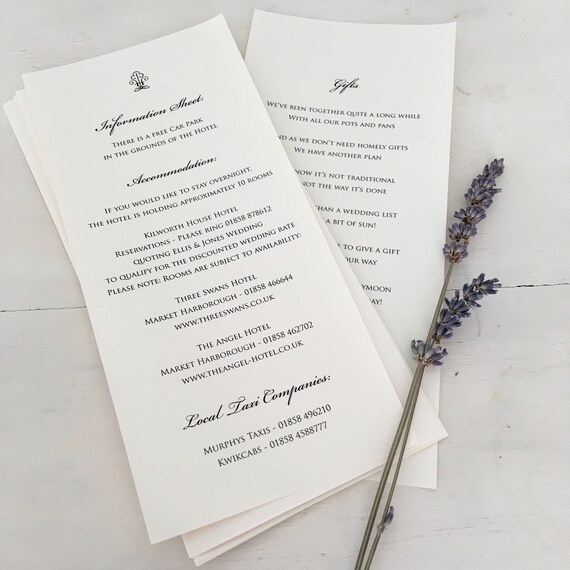 Information Sheet:
There is a free Car Park
in the grounds of the Hotel
Accommodation:
If you would like to stay overnight,
the hotel is holding approximately 10 rooms
Kilworth House Hotel
Reservations - Please ring 01858 878612
Quoting Ellis & Jones Wedding
to qualify for the discounted wedding rate
Please note: Rooms are subject to availability:
Three Swans Hotel
Market Harborough - 01858 466644
www.threeswans.co.uk
The Angel Hotel
Market Harborough - 01858 462702
www.theangel-hotel.co.uk
Local Taxi Companies:
Murphys Taxis - 01858 496210
Kwikcabs - 01858 4588777
Gifts
We've been together quite a long while
With all our pots and pans
and as we don't need homely gifts
We have another plan
now it's not traditional
not the way it's done
than a wedding list
a bit of sun!
to give a gift
our way